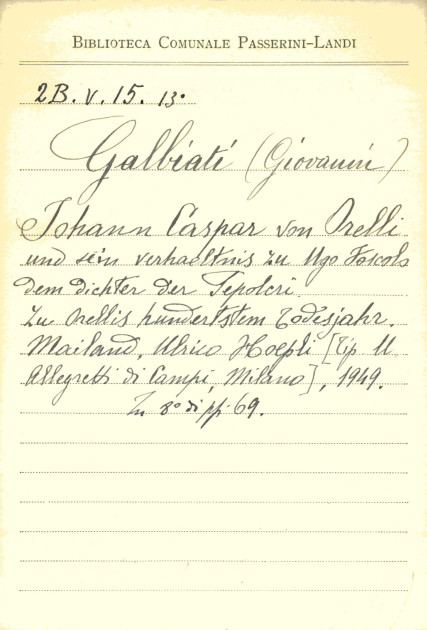 BIBLIOTECA COMUNALE PASSERINI-LANDI
2B. V. 15. 13.
Galbiati (Giovanni)
Johann Caspar von Orelli
und sein verhaeltnis zu Ugo Foscolo
dem dichter der Sepolcri.
Zu Orellis hundertstem Todesjahr.
Mailand, Ulrico Hoepli [Tip. U.
Allegretti di Campi, Milano], 1949.
In 8° di pp. 69.